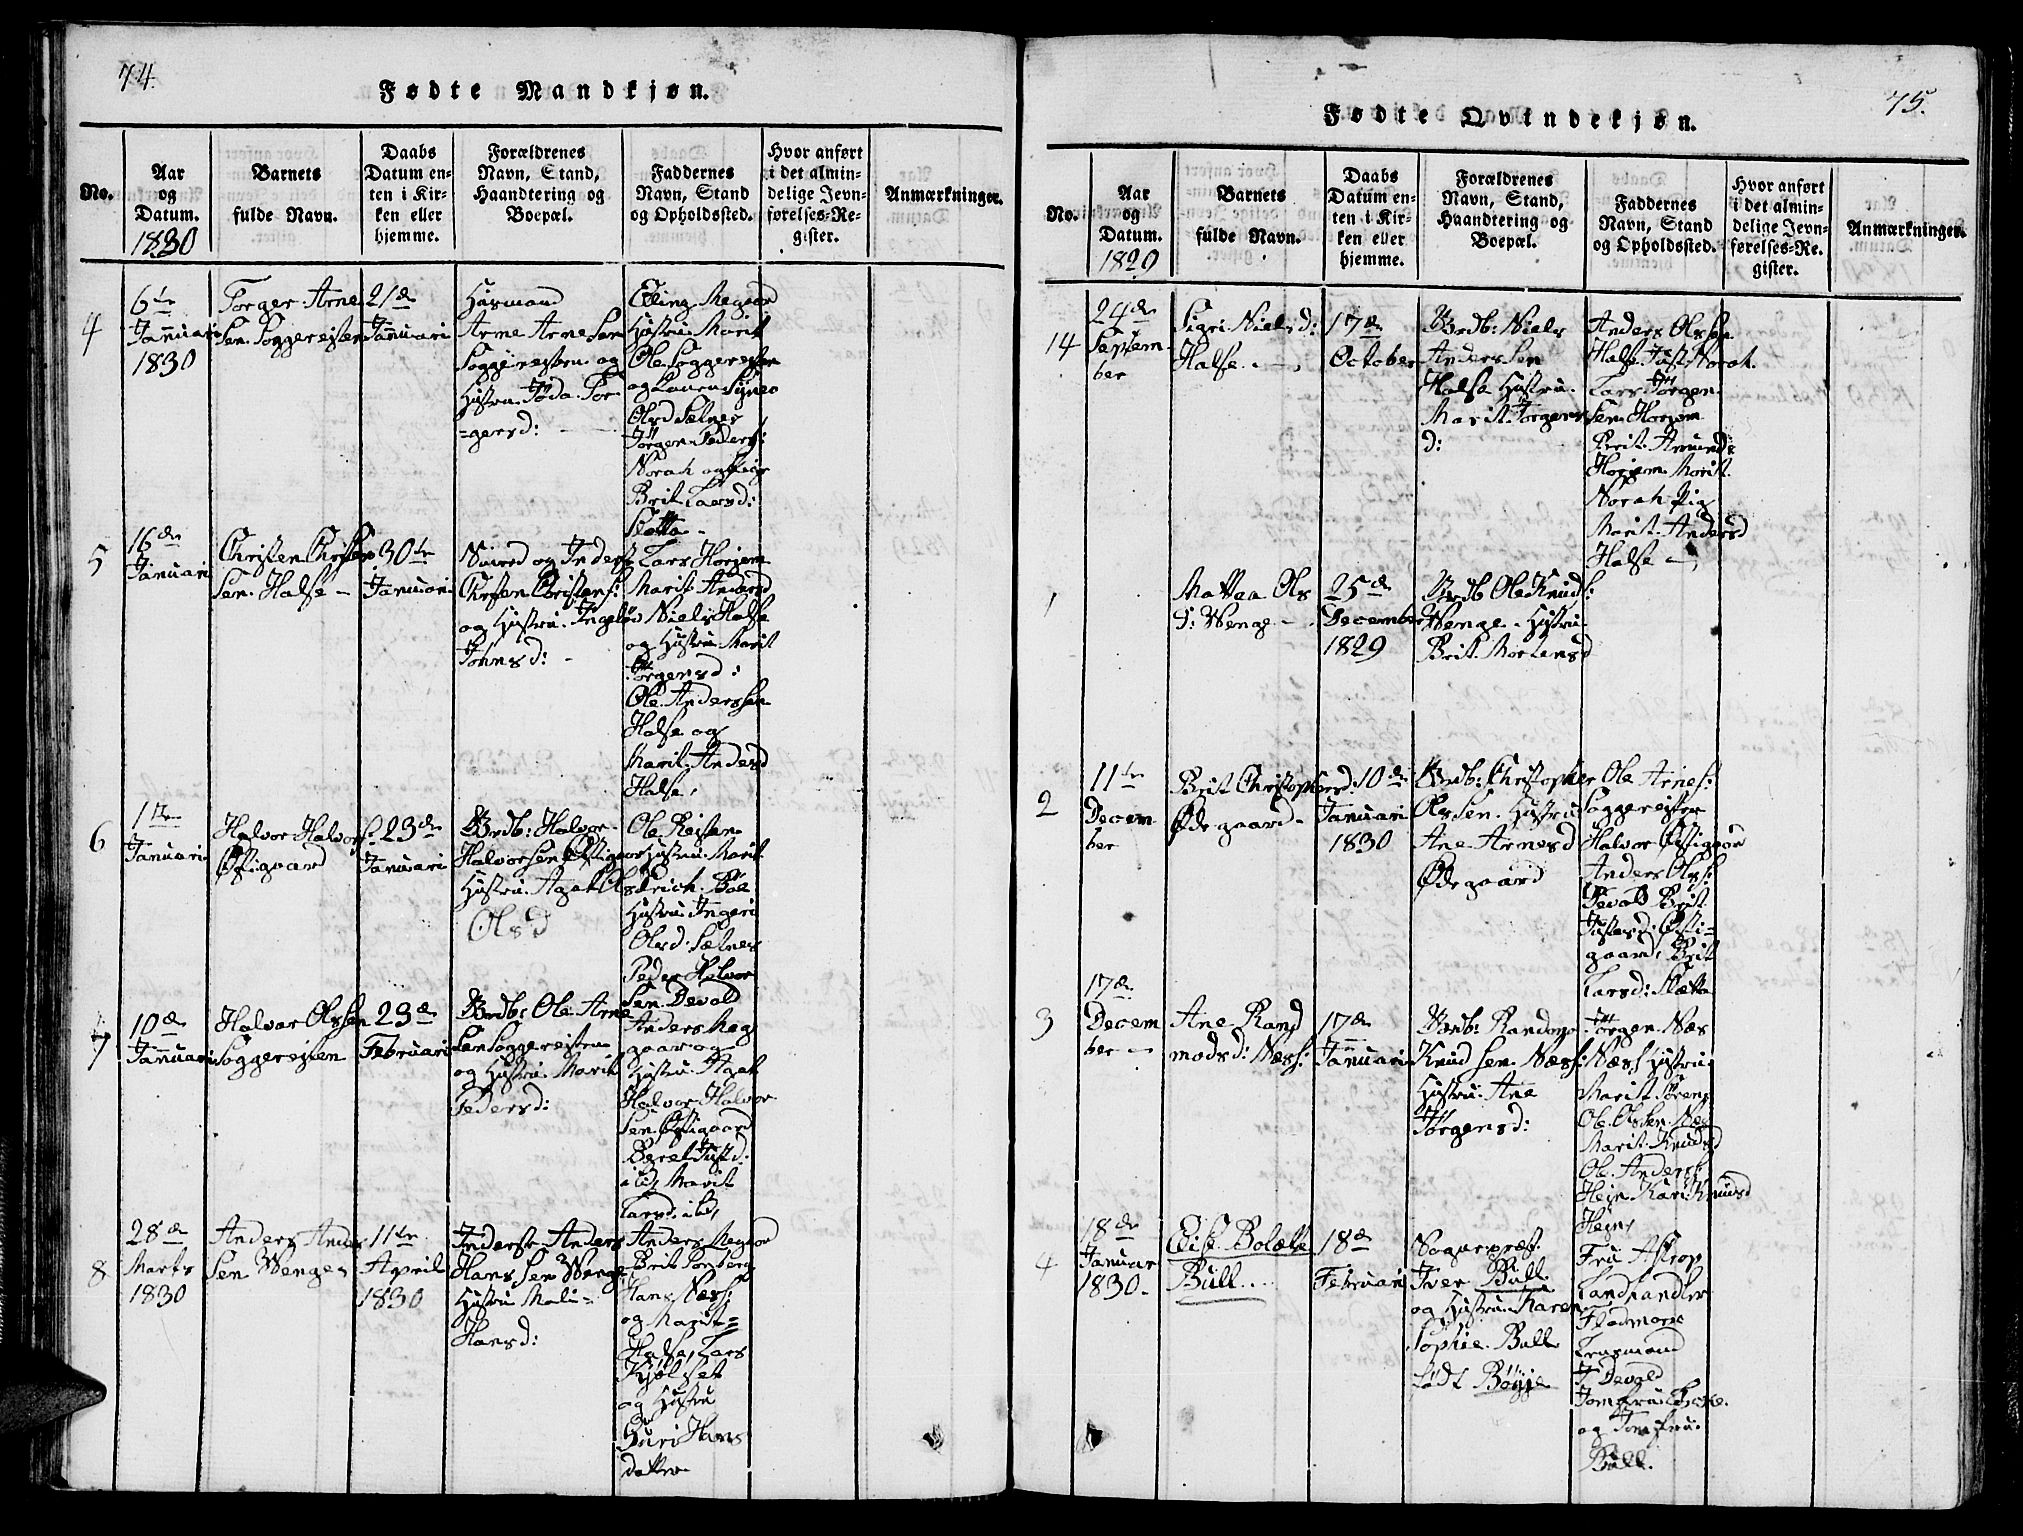 74.
Fødte Mandkjøn.
No.
Aar
og
Datum.
1830
Barnets
fulde Navn.
Daabs
Datum en-
ten i Kir-
ken eller
hjemme.
Forældrenes
Navn, Stand,
Haandtering og
Boepæl.
Faddernes
Navn, Stand
og Opholdssted.
Hvor anført
i det almin-
delige Jevn-
førelses-Re-
gister.
Anmærkninger.
4
6te
Januari
1830
Torger Arne
Sen. Soggereisten
21de
Januari
Husmand
Arne Arne Sen
Soggereisten og
Hustru
Tor
=gersd:
Hustru Marit
Ole Soggereisten
Olsd Sælnes
Jørgen Peders:
Norah
Brit Larsd:
Slotta
5
16de
Januari
Christen Christen
Sen. Halse
30te
Januari
og Hustru. Ingebor
Johnsd:
Lars Horjem
Marit Andersd
Niels Halse
og Hustru Marit
Jørgensd:
Ole Anderssen
Halse og
Marit Andersd
Halse.
6
1te
Januari
Halvor Halvors:
Østigaard
23de
Januari
Brdb: Halvor
Halvorsen Østigaar
Hustru. Agat Ols
Olsd
Ole Reisten
Hustru. Marit
Erich Böe
Hustru Ingeri
Olsd: Sælnes
Peder Halvor
Sen. Devold
7
10de
Januari
Halvor Olssen
Soggereisten
23de
Februari
Brdb: Ole Arne
Sen Soggereisten
og Hustru. Marit
Pedersd:
Anders Meg
gaar og
Hustru. Agat
Halvor Halvor
Sen. Østigaard
Beret Justd:
ibd, Marit
Larsd. ibd,
8
28de
Marts
1830
Anders Anders
Sen Wenge
11te
April
1830
Inderst. Anders
Hans Sen Wenge
Hustru Mali
Hansd:
Anders Megaard
Hans Næss:
og Marit=
Halse, Lars
og Hustru
Guri Hans
datter
75.
Fødte Qvindekjøn.
No.
Aar
og
Datum.
1829
Barnets
fulde Navn.
Daabs
Datum en-
ten i Kir-
ken eller
hjemme.
Forældrenes
Navn, Stand,
Haandtering og
Boepæl.
Faddernes
Navn, Stand
og Opholdssted.
Hvor anført
i det almin-
delige Jevn-
førelses-Re-
gister.
Anmærkninger.
14
24de
Septem
ber
Sigri Nielsd:
Halse.
17de
October
Brdb: Niels
Anderssen
Halse Hustru.
Marit Jørgens
d:
Anders Olsen
Halse. Just Norah.
Lars Jørgen
Sen. Horjem
Brit. Amund:
Horjem. Marit
Norah. Pig
Marit. Andersd
Halse
1
Mattea Ols
d: Wenge
25de
December
1829
Brdb Ole Knuds:
Wenge. Hustru
Brit. Mortensd
2
11te
Decem
ber
Brit Christophersd:
Ødegaard
10de
Januari
1830
Brdb: Christopher
Olssen. Hustru
Ane Arnesd
Ødegaard
Ole Arnes:
Soggereisten
Halvor Østigaar
Anders Ols:
Devold Brit
Justesd: Østi=
gaard, Brit
Larsd: Slotta
3
17de
Decem
ber
Ane Rand
modsd: Næss:
17de
Januari
Knudsen Næss:
Hustru. Ane
Jørgensd:
Jørgen Næs
Næss Hustru
Marit. Sørens
Ole. Olssen. Næs
Marit. Knudsd
Ole. Anders:
Hejn Kari Knudsd
Hejn,
4
18de
Januar
1830.
Elise Bolette
Bull
18de
Februari
Sognepræst
Iver Bull
og Hustru. Karen
Sophie. Bull
født Böyje
Fru Astrop
Landhandler
Flodmark
Lensmand
J Devold
og Jomfru
Bull.